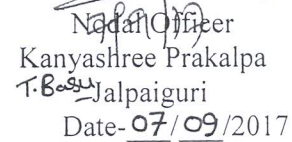 Nodal Officer
Kanyashree Prakalpa
T. Basu Jalpaiguri
Date- 07/09/2017